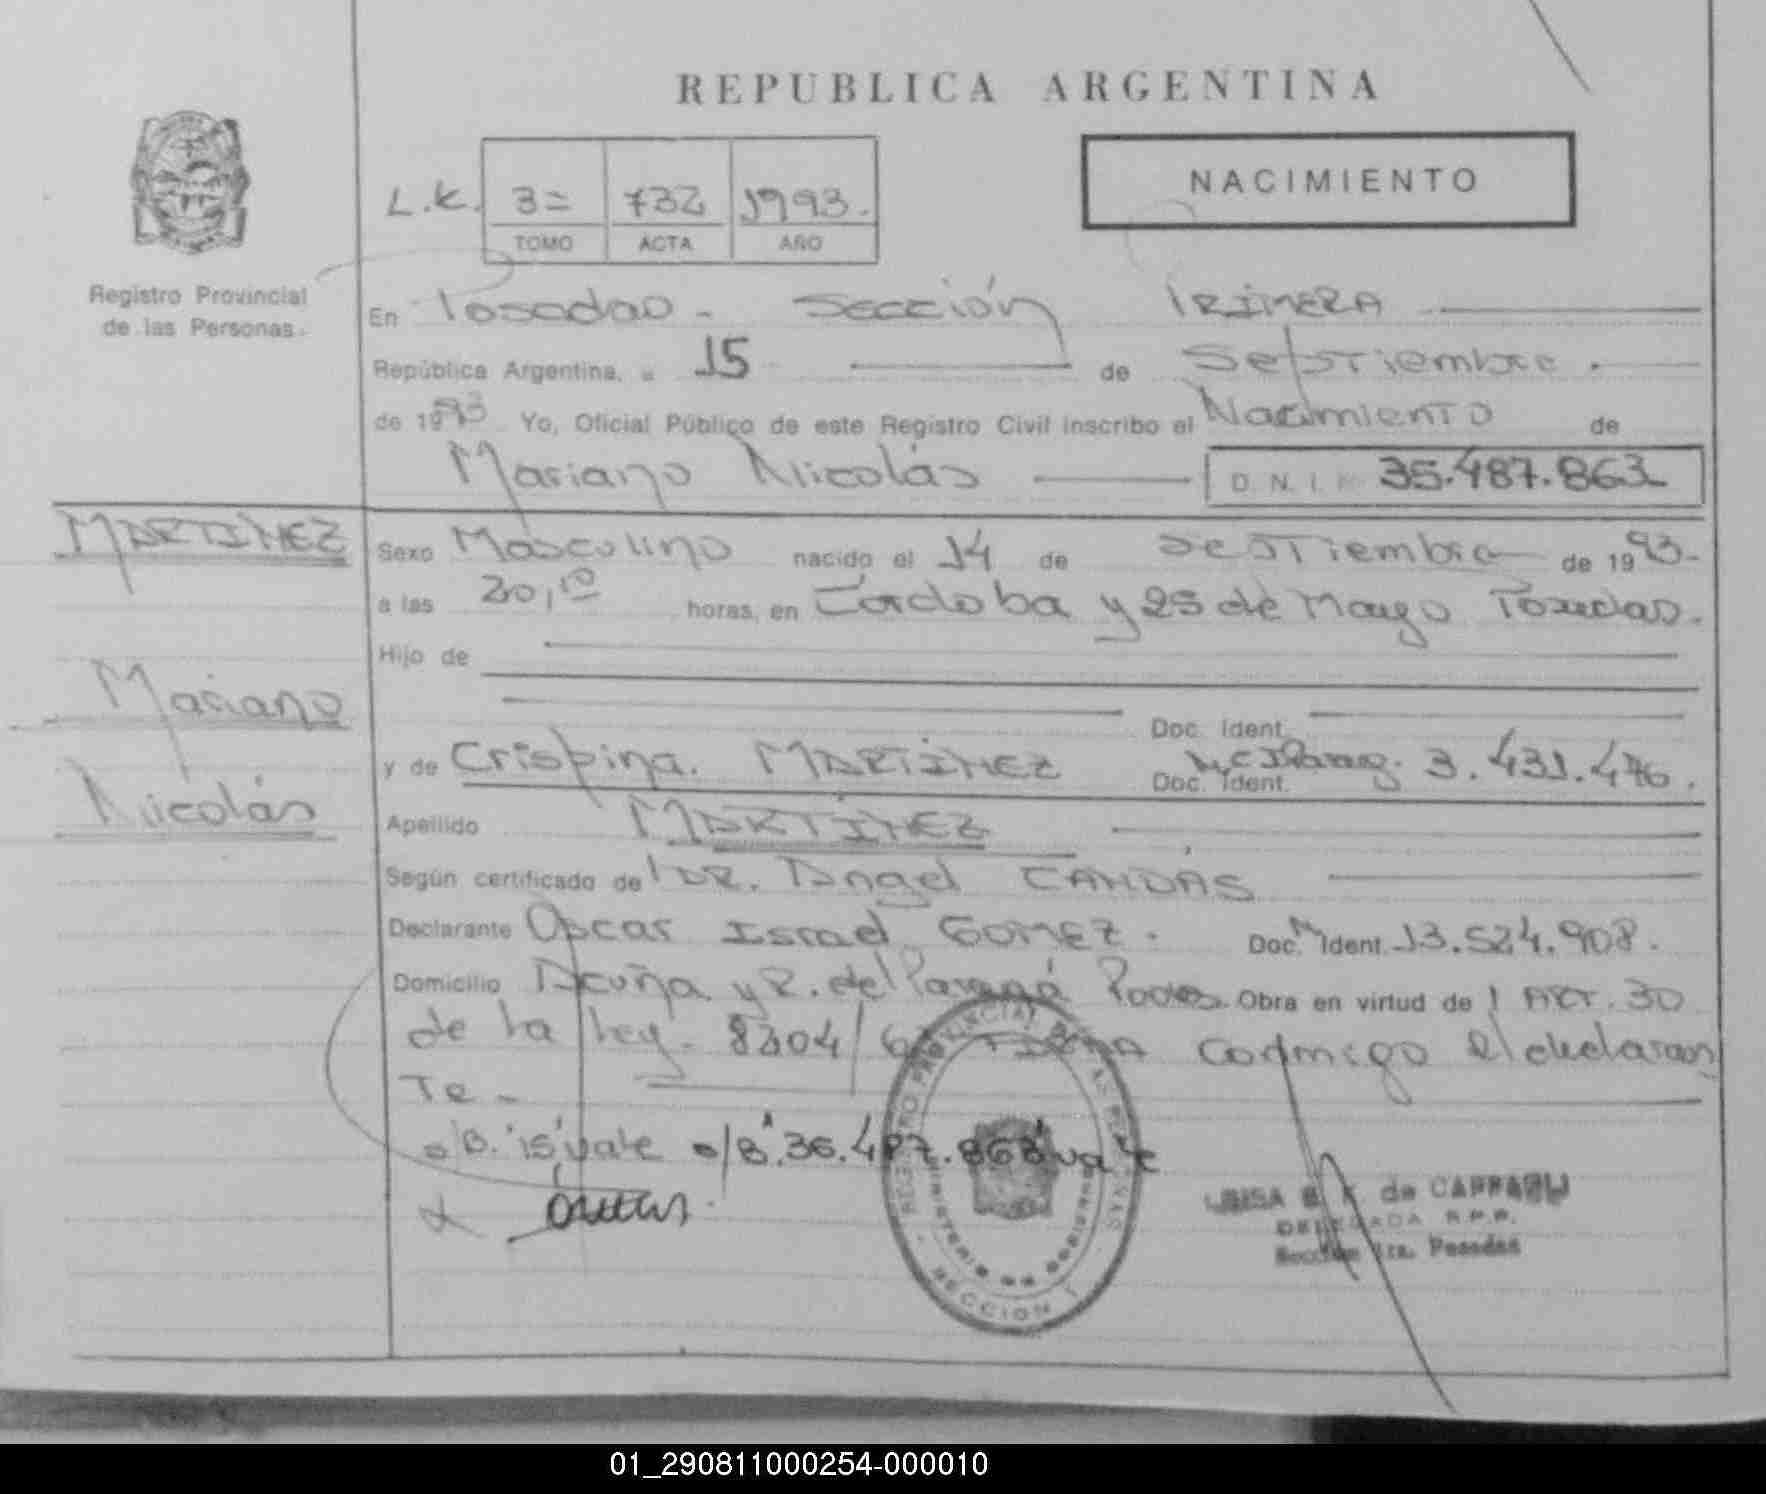 REPUBLICA ARGENTINA
NACIMIENTO
L.K. 3= 732 1993.
TOMO ACTA AÑO
Registro Provincial
de las Personas.
En Posadas - Sección PRIMERA
República Argentina, a 15 de Septiembre.
de 1993 Yo, Oficial Público de este Registro Civil inscribo el Nacimiento de
Mariano Nicolás D.N.I. Nº 35.487.863
MARTINEZ
Mariano
Nicolás
Sexo Masculino nacido el 14 de Septiembre de 1993.
a las 20,10 horas, en Córdoba y 25 de Mayo Posadas.
Hijo de
Doc. Ident.
y de Crispina. MARTINEZ Doc. Ident. 3.431.476.
Apellido MARTINEZ
Según certificado de l DR. Angel CANDÁS
Declarante Oscar Israel GOMEZ. Doc. Ident. 13.524.908.
Domicilio Acuña y R. del Paraná Obra en virtud de l ART. 30
de la Ley. 8204/63 FIRMA conmigo el declaran
Te-
s/B. "15" vale s/B. 35.487.863 vale
REGISTRO PROVINCIAL DE LAS PERSONAS
MINISTERIO DE GOBIERNO
SECCION 1
LUISA de
DELEGADA R.P.P.
Sección 1ra. Posadas
01_290811000254-000010